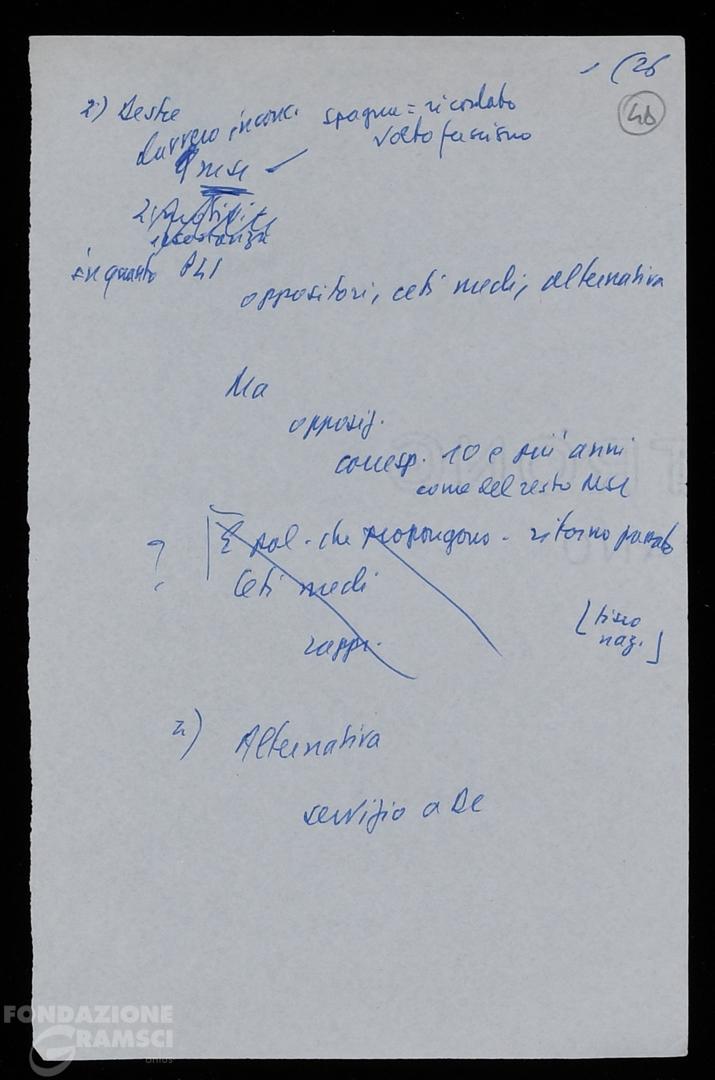 (26
46
2) Destre
davvero inconc. Spagna = ricordato
volto fascismo
MSI
in quanto PLI
oppositori, ceti medi, alternativa
Ma
opposiz.
corresp. 10 e più anni
come del resto MSI
? E pol. che propongono - ritorno passato
Ceti medi
[fisco
naz.]
rappr.
2) Alternativa
servizio a DC
FONDAZIONE
GRAMSCI
onlus